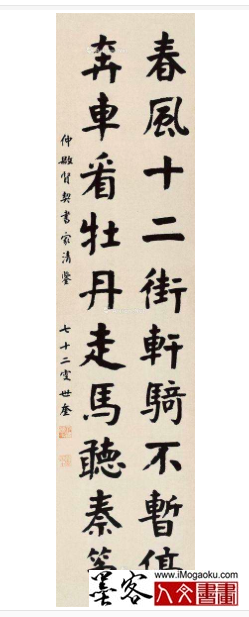 春風十二街軒騎不暫停
奔車看牡丹走馬聽秦筝
仲敏賢契書家清鑒
七十二叟世奎
墨客
www.iMogaoku.com
人文書畫